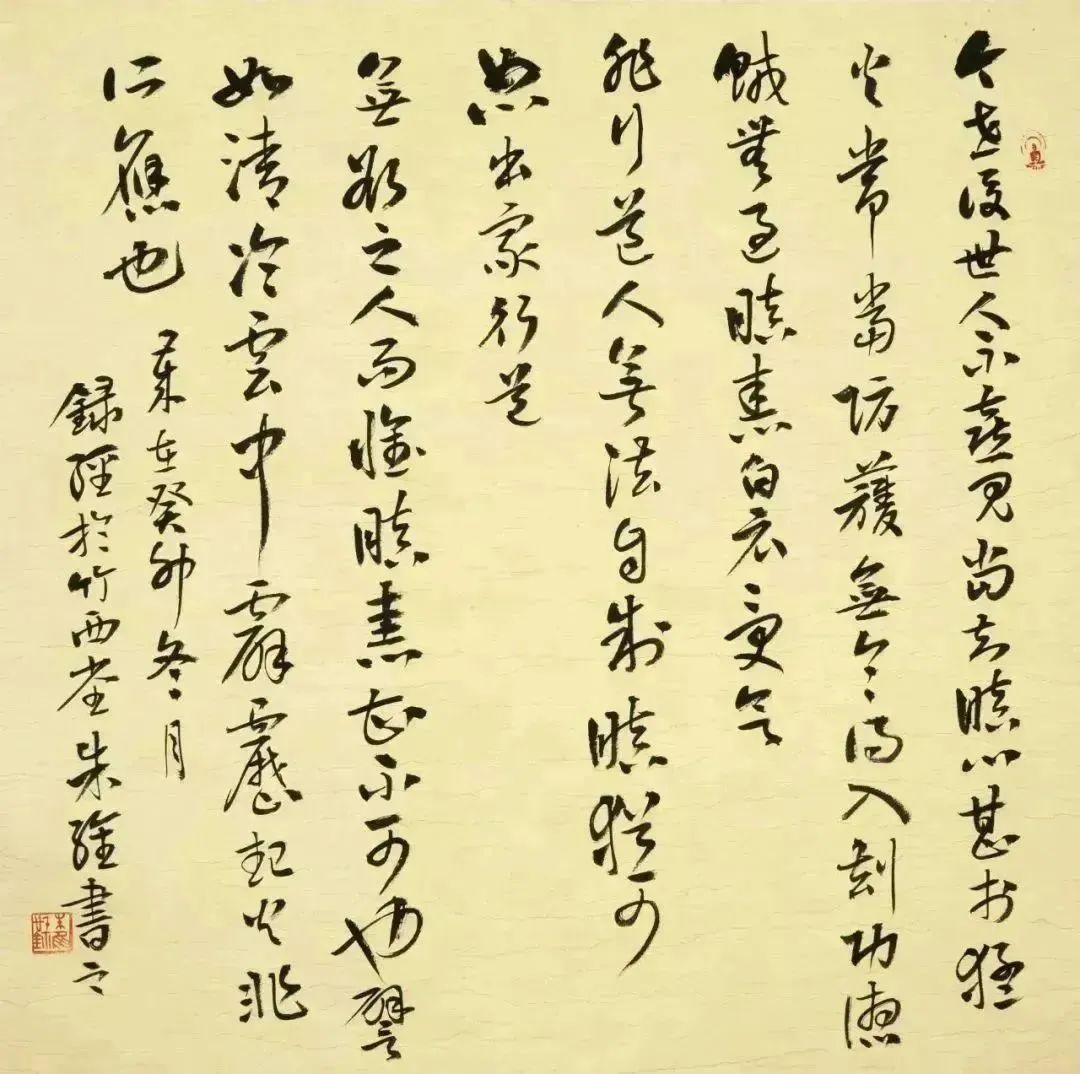 今世後世人不憙見當知瞋心甚於猛
火常當坊護無令得入劫功德
賊無過瞋恚白衣受欲
非行道人無法自制瞋猶可
恕出家行道
無欲之人而懷瞋恚甚不可也譬
如清冷雲中霹靂起火非
所應也
歲在癸卯冬月
録經於竹西堂朱書之